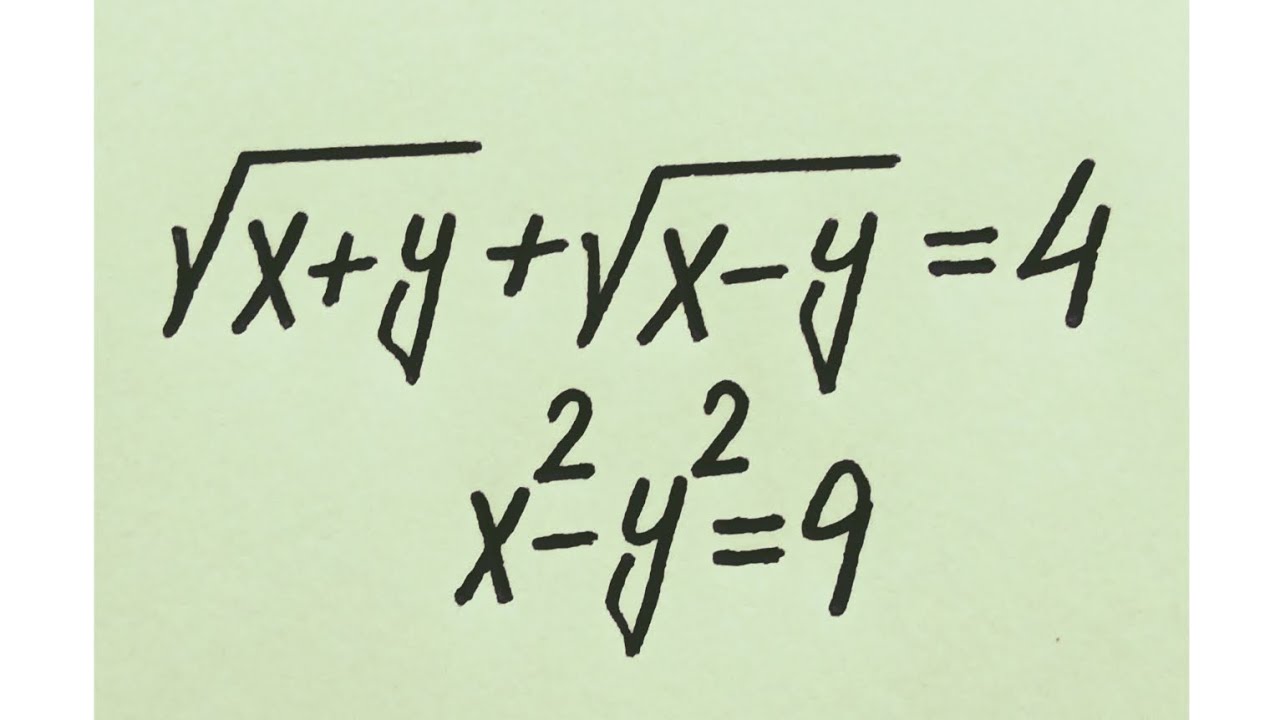 √(x+y) + √(x-y) = 4
x² - y² = 9